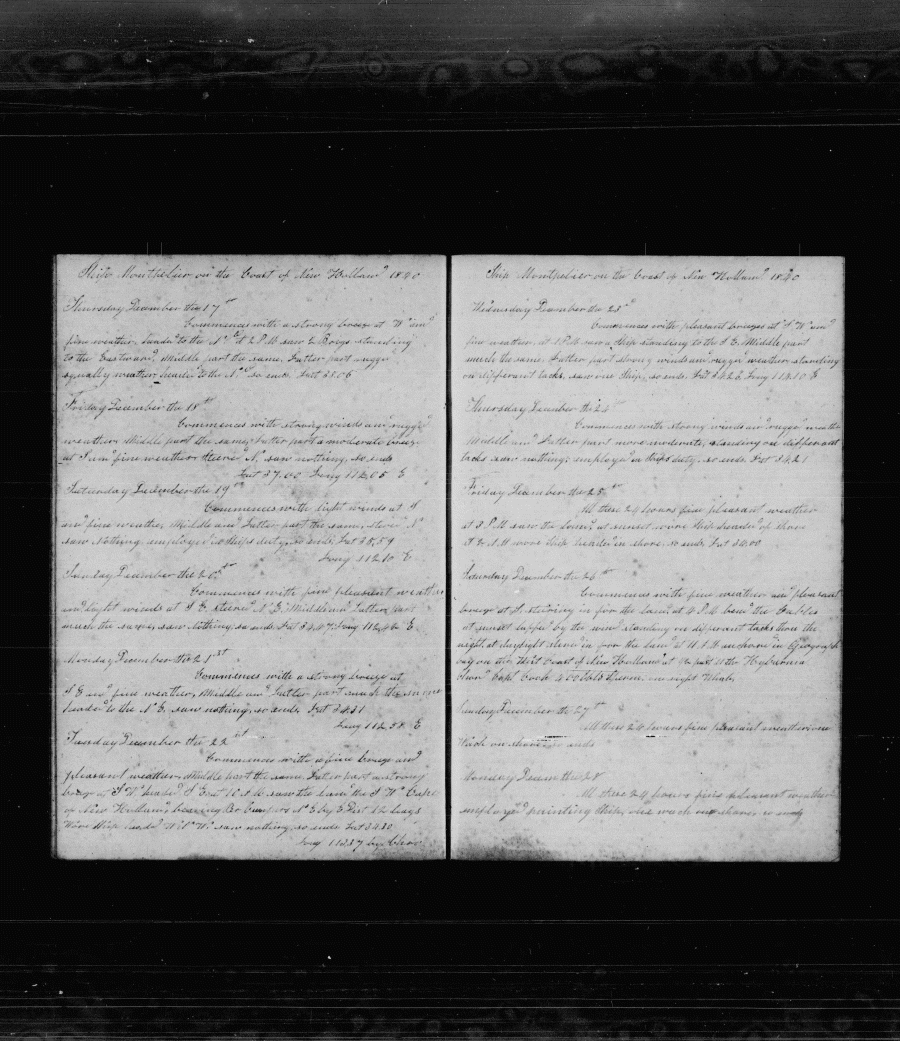 Ship Montpelier on the Coast of New Holland 1840
Thursday December the 17th
Commences with a strong breeze at W and
fine weather, headed to the Nd at 2 P.M saw 2 Barqs standing
to the Eastward, Middle part the same, Latter part rugged
squally weather headed to the Nd so ends Lat 38.06
Friday December the 18th
Commences with strong winds and rugged
weather Middle part the same, Latter part a moderate breeze
at 1 am fine weather steered Nd saw nothing, so ends
Lat 37.00 Long 112.05 E
Saturday December the 19th
Commences with light winds at S
and fine weather, Middle and Latter part the same, steered N
saw Nothing, employed in Ships duty, so ends, Lat 35.59
Long 112.10 E
Sunday December the 20th
Commences with fine pleasant weather
and light winds at S E steered N E, Middle and Latter part
much the same, saw Nothing, so ends Lat 34.47 Long 112.46 E
Monday December the 21st
Commences with a strong breeze at
S E and fine weather, Middle and Latter part much the same
headed to the N E, saw nothing, so ends, Lat 34.31
Long 112.58 E
Tuesday December the 22nd
Commences with a fine breeze and
pleasant weather, Middle part the same, Latter part a strong
breeze at S W headed S E at 10 A.M saw the land the S W Cape
of New Holland bearing N E by E Dist 12 leags
Wore Ship headed saw nothing, so ends Lat 34.30
Long 113.37 by Chro
Ship Montpelier on the Coast of New Holland 1840
Wednesday December the 23d
Commences with pleasant breezes at S W and
fine weather, at 1 P.M saw a Ship standing to the S E, Middle part
much the same, Latter part strong winds and rugged weather standing
on differant tacks, saw one Ship, so ends Lat 34.28, Long 113.10 E
Thursday December the 24
Commences with strong winds and rugged weather
Middle and Latter part more moderate, standing on differant
tacks saw nothing, employed in Ships duty, so ends Lat 34.21
Friday December the 25th
All these 24 hours fine pleasant weather
at 3 P.M saw the land, at sunset wore Ship headed of shore
at A.M wore Ship headed in shore, so ends Lat 34.00
Saturday December the 26th
Commences with fine weather and pleasant
breeze at S. steering in for the land at 4 P.M the
at sunset the wind standing on differant tacks thru the
night, at daylight steered in for the land at 11 A.M anchored in Geograph
bay on the West Coast of New Holland at part is the Hybernia
Capt Cook 400 bbls Sperm, one right Whale,
Sunday December the 27th
All these 24 hours fine pleasant weather one
Watch on shore, so ends
Monday Decem the 28
All these 24 hours fine pleasant weather
employed painting Ship, one wach on shore, so ends